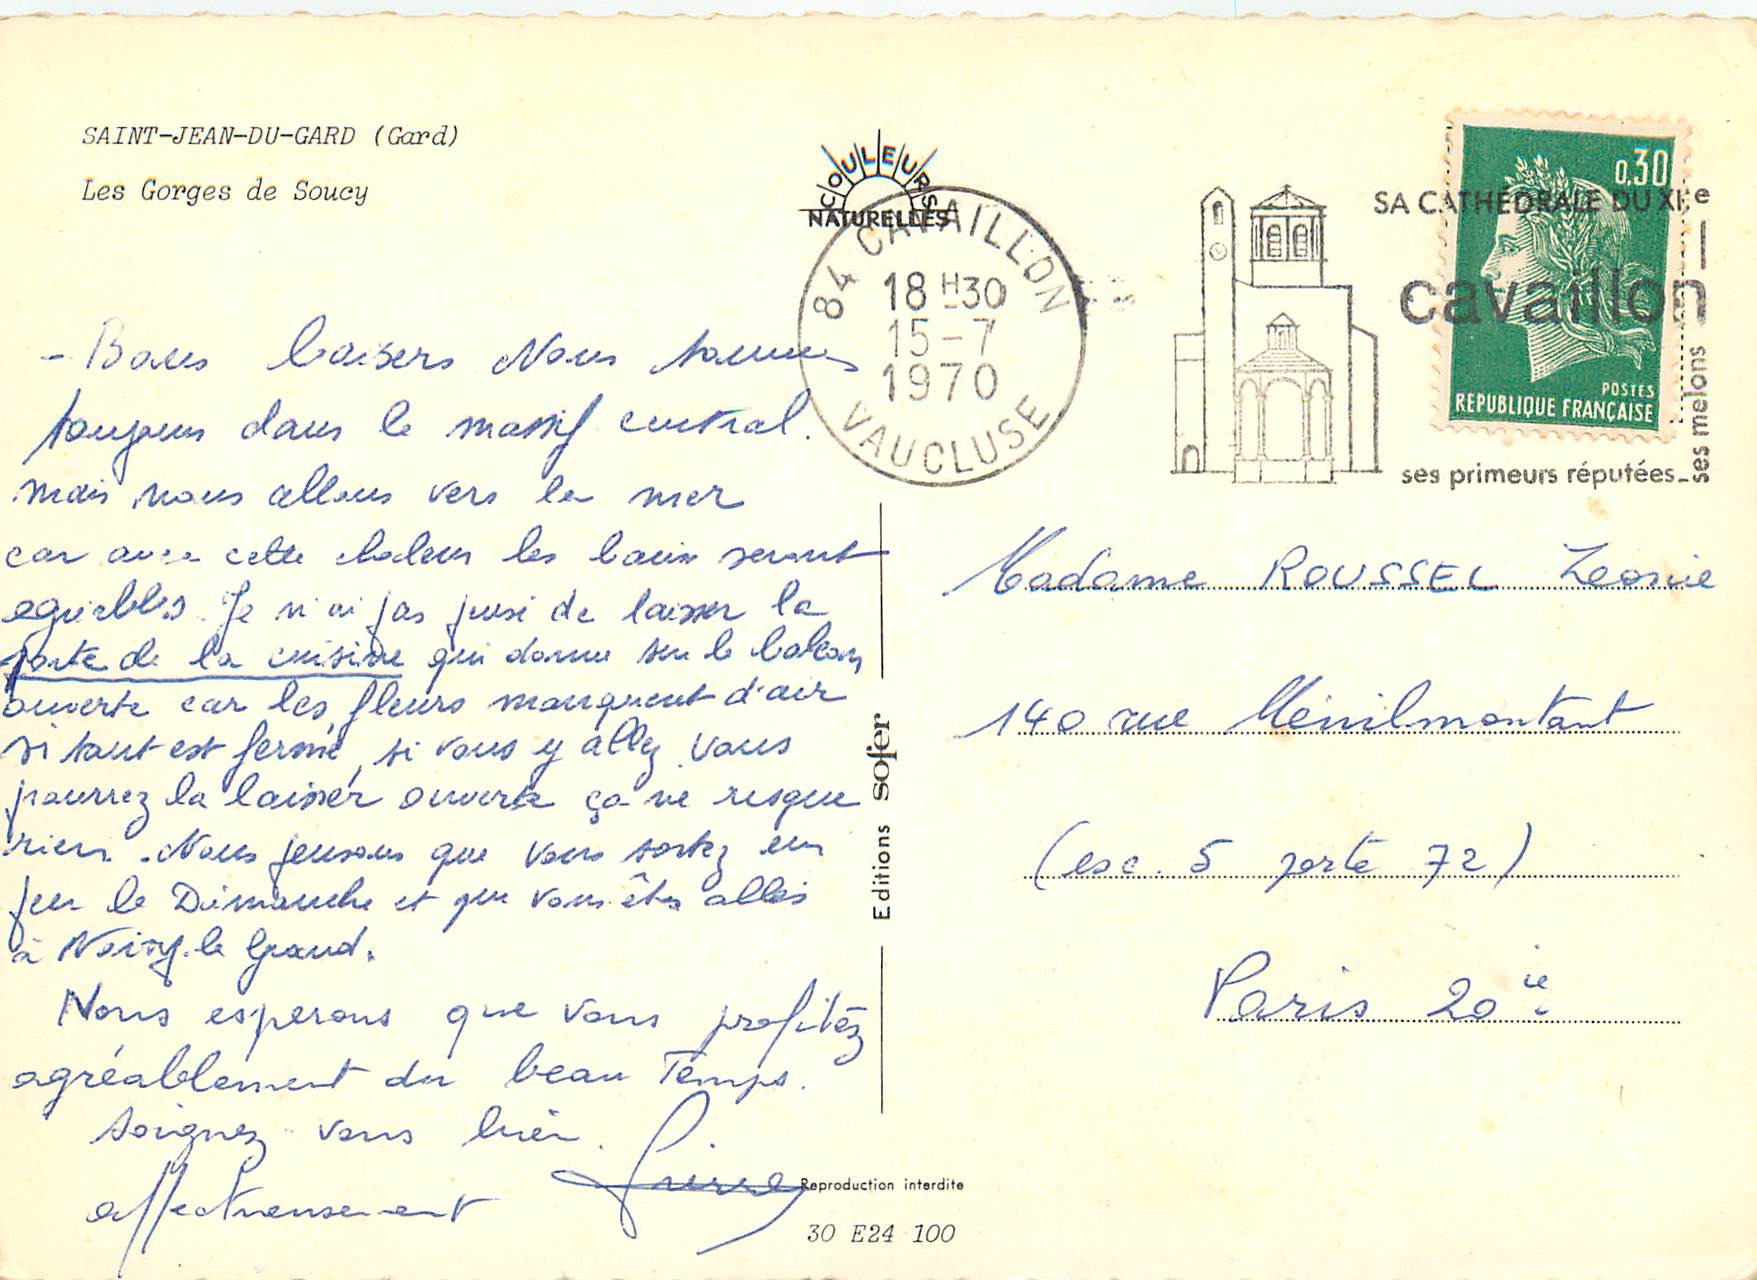 SAINT-JEAN-DU-GARD (Gard)
Les Gorges de Soucy
COULEURS
NATURELLES
84 CAVAILLON
18 H 30
15-7
1970
VAUCLUSE
SA CATHÉDRALE DU XIIe
cavaillon
ses primeurs réputées_
ses melons
0,30
POSTES
REPUBLIQUE FRANÇAISE
- Bons baisers Nous sommes
toujours dans le massif central.
mais nous allons vers la mer
car avec cette chaleur les bains seront
agréables. Je n'ai pas précisé de laisser la
porte de la cuisine qui donne sur le balcon,
ouverte car les fleurs manquent d'air
si tout est fermé, si vous y allez vous
pourrez la laisser ouverte ça ne risque
rien. Nous pensons que vous sortez un
peu le Dimanche et que vous êtes allés
à Noisy-le Grand.
Nous esperons que vous profitéz
agréablement du beau Temps.
Soignez vous bien.
affectueusement Pierre
Editions sofer
Madame ROUSSEL Leonie
140 rue Ménilmontant
(esc. 5 porte 72)
Paris 20ie
Reproduction interdite
30 E24 100